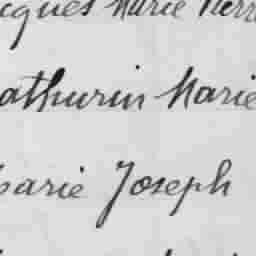 cques Marie Pierre
athurin Marie
Marie Joseph